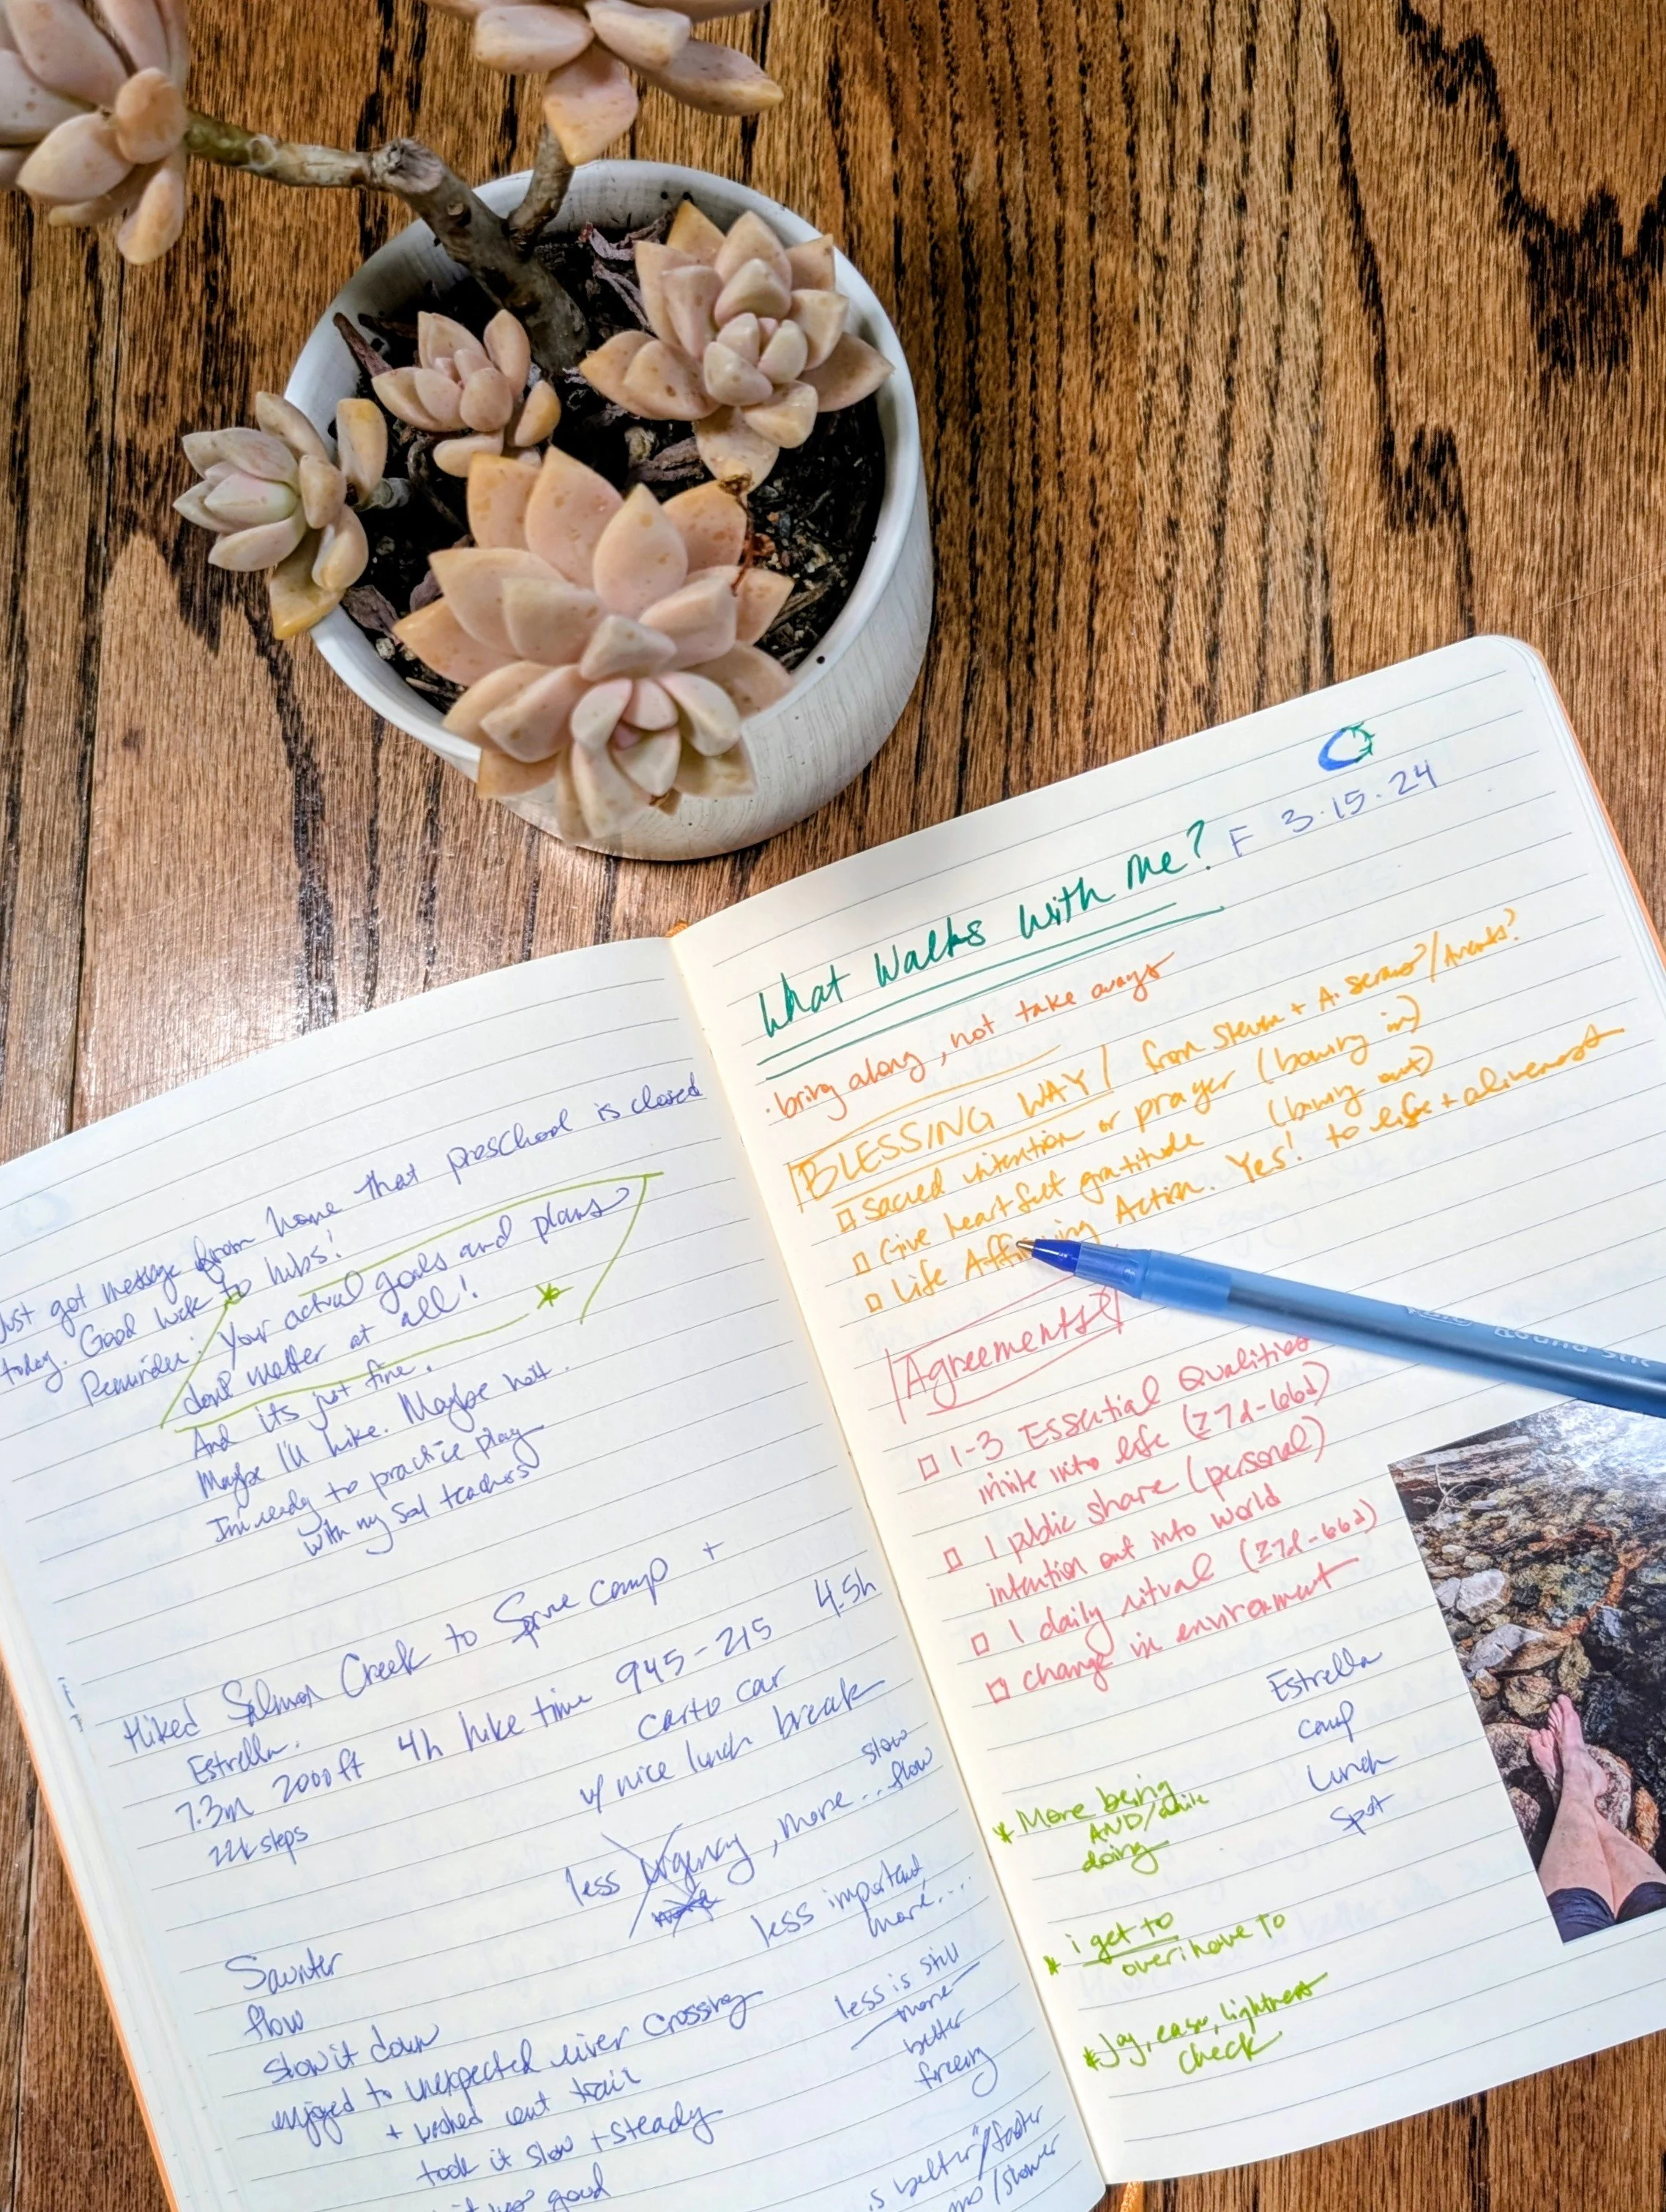 Just got message from home that preschool is closed
today. Good luck to hubs!
Reminder: Your actual goals and plans
don't matter at all!
And its just fine.
Maybe I'll hike. Maybe not.
Im ready to practice play
with my teachers
Hiked Salmon Creek to Spruce camp +
Estrella.
7.3m 2000ft 4h hike time 945-215 4.5h
22k steps car to car
w/ nice lunch break
less urgency, more... slow
flow
less important,
more....
Saunter
flow
slow it down
enjoyed to unexpected river crossing
+ washed out trail
took it slow + steady
good
less is still
more
better
freeing
is better"/faster
/slower
F 3.15.24
What Walks With Me?
• bring along, not take aways
BLESSING WAY / from Steven + A.
□ Sacred intention or prayer (bowing in)
□ Give heartfelt gratitude (bowing out)
□ Life Affirming Action. Yes! to life + aliveness
Agreements
□ 1-3 Essential Qualities
invite into life (≥7d-66d)
□ 1 public share (personal)
intention out into world
□ 1 daily ritual (≥7d-66d)
□ change in environment
Estrella
camp
Lunch
Spot
* More being
AND/while
doing
* i get to
over i have to
* Joy, ease, lightness
check